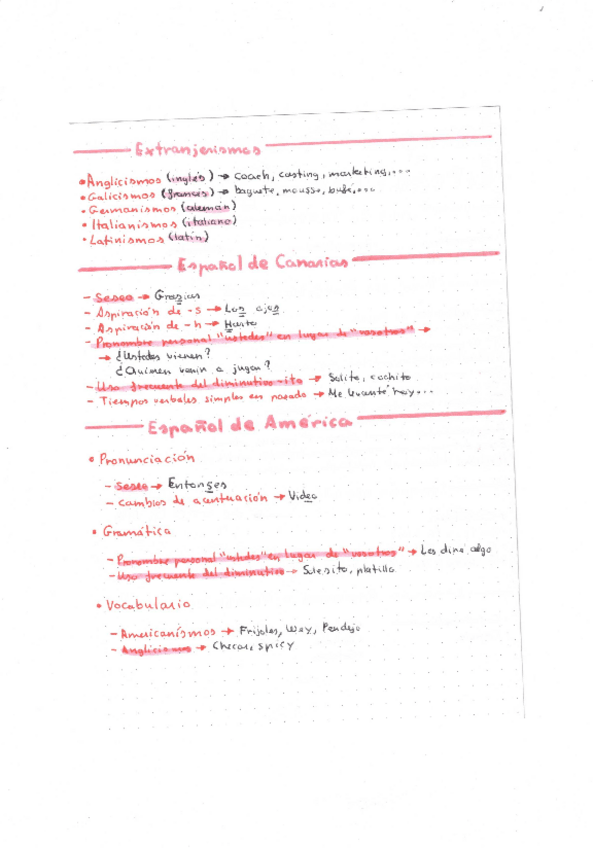 Extranjerismos
• Anglicismos (inglés) → coach, casting, marketing,...
• Galicismos (francés) → baguete, mousse, bufé,...
• Germanismos (alemán)
• Italianismos (italiano)
• Latinismos (latín)
Español de Canarias
- Seseo → Grasias
- Aspiración de -s → Los ojos
- Aspiración de -h → Harto
- Pronombre personal "ustedes" en lugar de "vosotros" →
→ ¿Ustedes vienen?
¿Quiénen van a jugar?
- Uso frecuente del diminutivo -ito → Solito, cochito
- Tiempos verbales simples en pasado → Me levanté hoy...
Español de América
• Pronunciación
- Seseo → Entonses
- Cambios de acentuación → Video
• Gramática
- Pronombre personal "ustedes" en lugar de "vosotros" → Les dire algo
- Uso frecuente del diminutivo → Solesito, platillo
• Vocabulario
- Americanismos → Frijoles, Wey, Pendejo
- Anglicismos → Checar, spicy